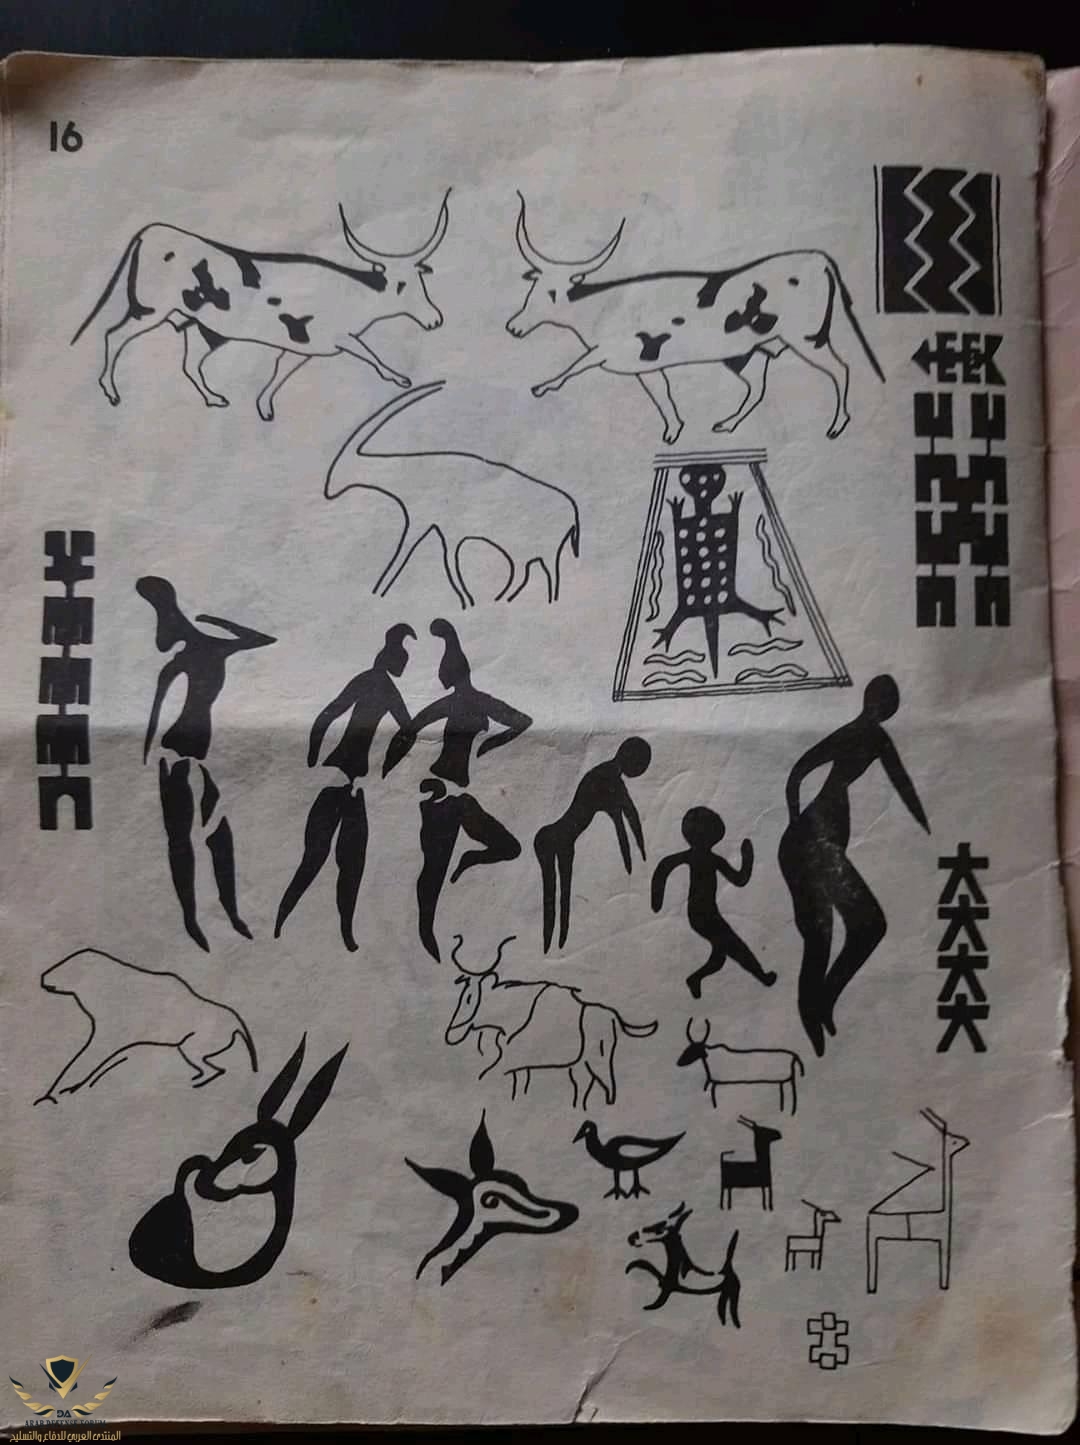 16
DA
ARAB DEFENSE FORUM
المنتدى العربي للدفاع والتسليح